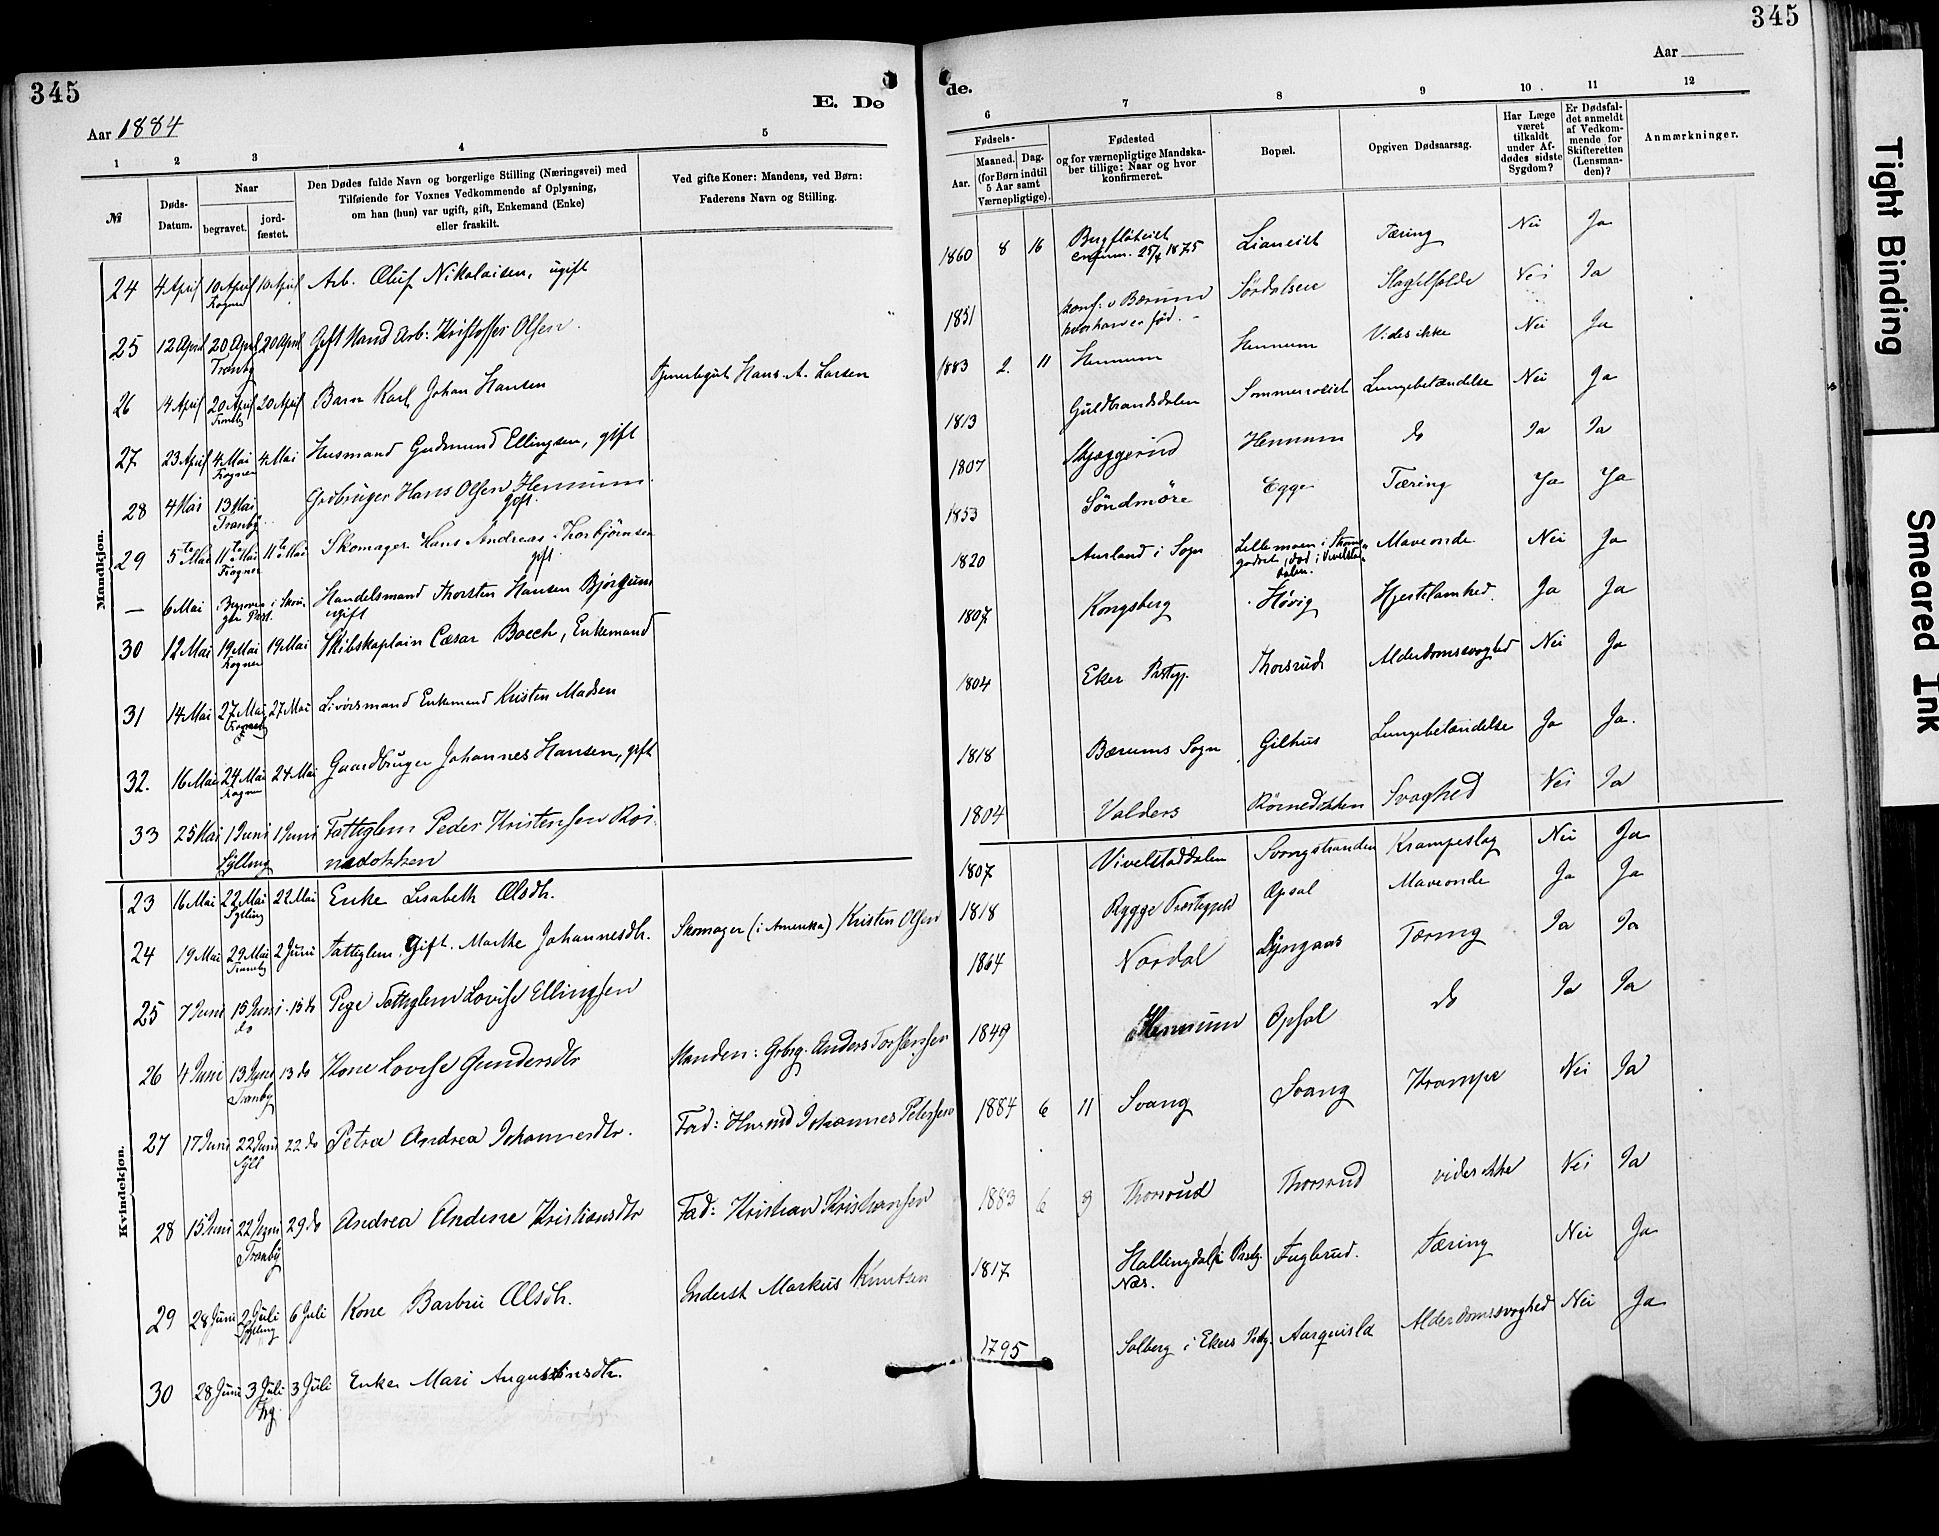 345
345
Aar 1884
E. Dø
de.
Aar
1
2
3
4
5
6
7
8
9
10
11
12
№
Døds-
Datum.
Naar
begravet.
jord-
fæstet.
Den Dødes fulde Navn og borgerlige Stilling (Næringsvei) med
Tilføiende for Voxnes Vedkommende af Oplysning,
om han (hun) var ugift, gift, Enkemand (Enke)
eller fraskilt.
Ved gifte Koner: Mandens, ved Børn:
Faderens Navn og Stilling.
Fødsels-
Aar.
Maaned. Dag.
(for Børn indtil
5 Aar samt
Værnepligtige).
Fødested
og for værnepligtige Mandska-
ber tillige: Naar og hvor
konfirmeret.
Bopæl.
Opgiven Dødsaarsag.
Har Læge
været
tilkaldt
under Af-
dødes sidste
Sygdom?
Er Dødsfal-
det anmeldt
af Vedkom-
mende for
Skifteretten
(Lensman-
den)?
Anmærkninger.
Mandkjøn.
24 4 April 10 April Frogner 10 April Arb. Oluf Nikolaisen, ugift 1860 8 16 25/4 1875 Lianeiet Tæring Nei Ja
25 12 April 20 April Tranby 20 April Gift Mand Arb: Kristoffer Olsen 1851 konf: i Bærum hvor han er fød. Sørdalseie Nei Ja
26 4 April 20 April Tranby 20 April Barn Karl Johan Hansen Hans A. Larsen 1883 2. 11 Hennum Hennum Vides ikke Nei Ja
27 23 April 4 Mai Frogner 4 Mai Husmand Gudmund Ellingsen, gift 1813 Guldbrandsdalen Lungebetændelse Nei Ja
28 4 Mai 13 Mai Tranby Grdbruger Hans Olsen Hennum gift. 1807 Skjæggerud Hennum do Ja Ja
29 5te Mai 11te Mai Frogner 11te Mai Skomager Hans Andreas Thorbjørnsen gift 1853 Søndmøre Egge Tæring Ja Ja
— 6 Mai Handelsmand Thorsten Hansen Bjørgum ugift 1820 Aurland i Sogn Maveonde Nei Ja
30 12 Mai 19 Mai Frogner 19 Mai Skibskaptain Cæsar Boeck, Enkemand 1807 Kongsberg Høvig Hjertelamhed Ja Ja
31 14 Mai 27 Mai 27 Mai Enkemand Kristen Madsen 1804 Eker Thorsrud Alderdomssvaghed Nei Ja
32. 16 Mai 24 Mai Frogner 24 Mai Gaardbruger Johannes Hansen, gift 1818 Bærums Sogn Gilhus Lungebetændelse Ja Ja.
33 25 Mai 1 Juni Sylling 1 Juni Fattiglem Peder Kristensen Rør-
nedokken 1804 Valders Rørnedokken Svaghed Nei Ja
Kvindekjøn.
23 16 Mai 22 Mai 22 Mai Enke Lisabeth Olsdtr. 1807 Vivelstaddalen Svangstranden Krampeslag Nei Ja
24 19 Mai 29 Mai Tranby 2 Juni Fattiglem Gift. Marthe Johannesdtr. Skomager (i Amerika) Kristen Olsen 1818 Rygge Opsal Maveonde Ja Ja
25 7 Juni 15 Juni do 15 do Pige Fattiglem Lovise Ellingsen 1864 Nordal Lyngaas Tæring Ja Ja
26 4 Juni 13 Juni Tranby 13 do Kone Lovise Gundersdtr Manden: Grbrg. Anders Torstensen 1849 Hennum Opsal do Ja Ja
27 17 Juni 22 Juni Syll 22 do Petra Andrea Johannesdtr. Fad: Husmd Johannes Petersen 1884 6 11 Svang Svang Krampe Nei Ja
28 15 Juni 22 Juni Tranby 29 do Andrea Andine Kristiansdtr Fad: Kristian Kristiansen 1883 6 9 Thorsrud Thorsrud vides ikke Nei Ja
29 28 Juni 2 Juli Sylling 6 Juli Kone Barbru Olsdtr. Inderst Markus Knutsen 1817 Hallingdal Næs. Fuglerud. Tæring Nei Ja
30 28 Juni 3 Juli Frg. 3 Juli Enke Mari Augustinsdtr. 1795 Solberg i Ekers Prstg. Aarqvisla Alderdomssvaghed Nei Ja
Tight Binding
Smeared Ink